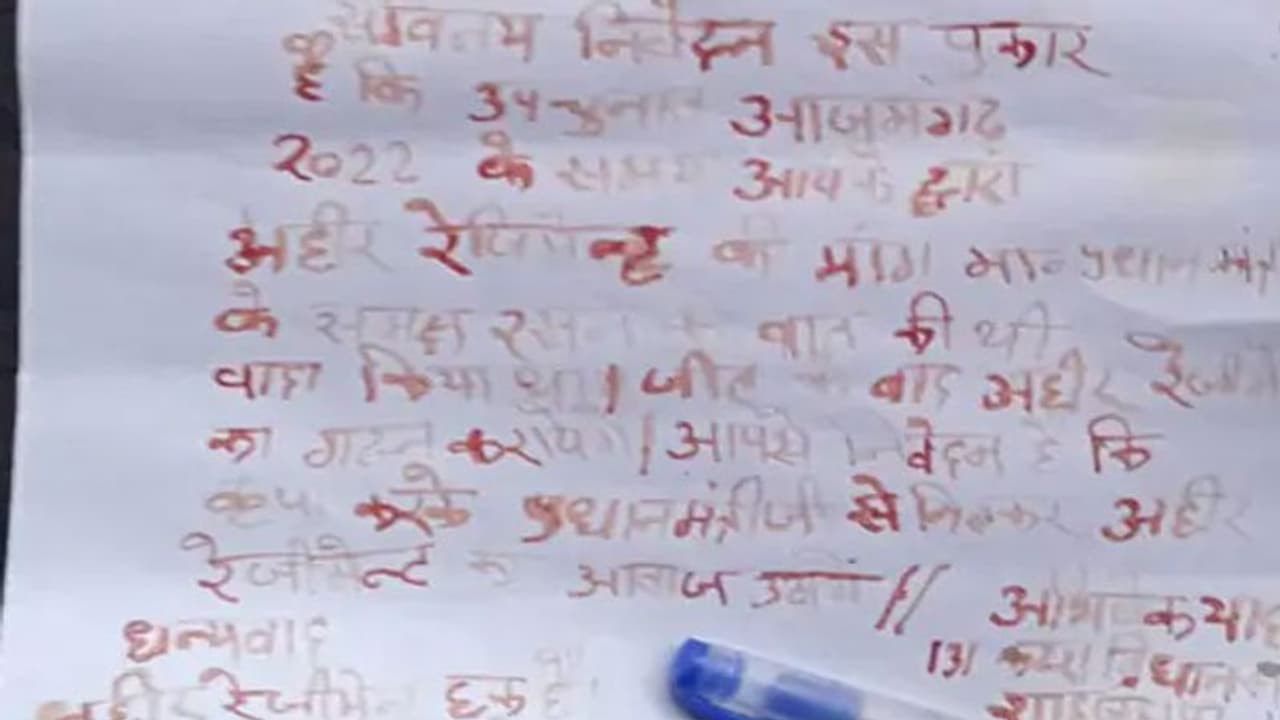 सविनय निवेदन इस प्रकार
है कि उपचुनाव आजमगढ़
2022 के समय आपके द्वारा
अहीर रेजिमेन्ट की मांग मा० प्रधानमंत्री
के समक्ष रखने के बात की थी
वादा किया था। जीत के बाद अहीर
का गठन करायेंगे। आपसे निवेदन है कि
कृपा करके प्रधानमंत्रीजी से मिलकर अहीर
रेजीमेन्ट की आवाज उठायें //
धन्यवाद
अहीर रेजीमेन्ट हक है
131